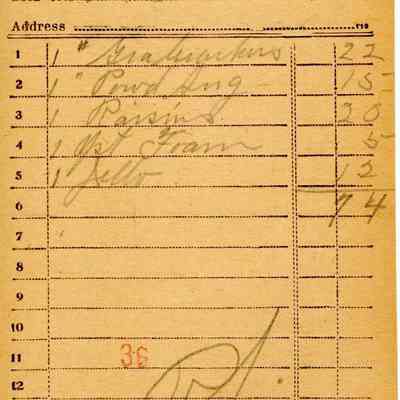 Address
1 1 " Grahamkers 22
2 1 " Powd Sug 15
3 1 Raisins 20
4 1 Yst Foam 5
5 1 Jello 12
6 74
7
8
9
10
11 36
12 Pd.